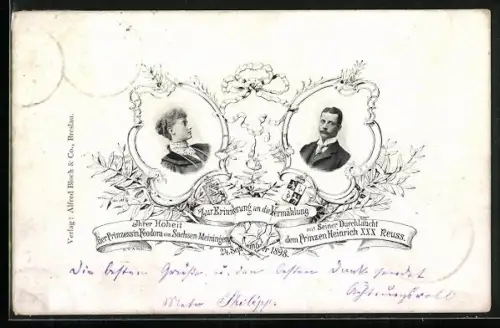 Verlag: Alfred Bloch & Co., Breslau.
Zur Erinnerung an die Vermählung
Ihrer Hoheit
der Prinzessin Feodora von Sachsen Meiningen
mit Seiner Durchlaucht
dem Prinzen Heinrich XXX Reuss.
24. September 1898.
Die besten Grüße u. den besten Dank sendet
Achtungsvoll
Philipp.